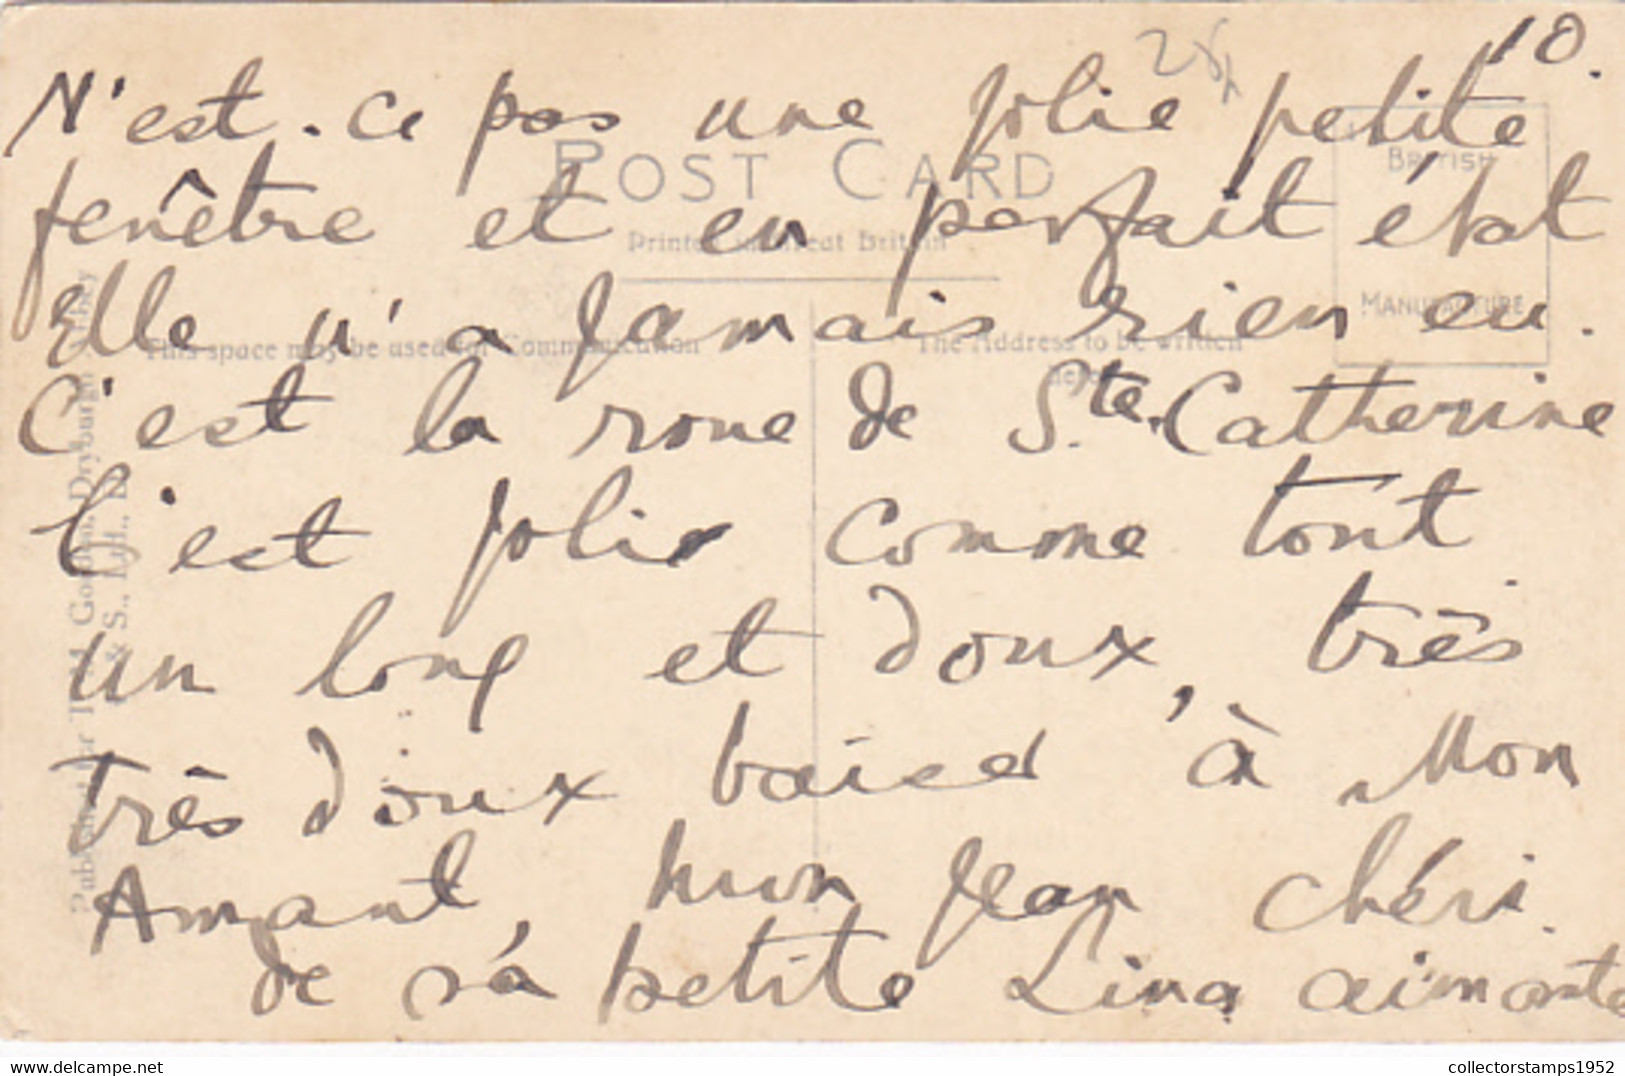 10.
N'est-ce pas une jolie petite
POST CARD
BRITISH
fenêtre et en parfait état
Printed in Great Britain
Elle n'a jamais rien eu.
MANUFACTURE
This space may be used for Communication
The Address to be written
here
C'est la roue de Ste. Catherine
C'est joli comme tout
un long et doux, très
très doux baiser à Mon
Amant, mon Jean chéri.
de sa petite Lina aimante
Published for Tod, Dryburgh Abbey
& S., Ltd.,
collectorstamps1952